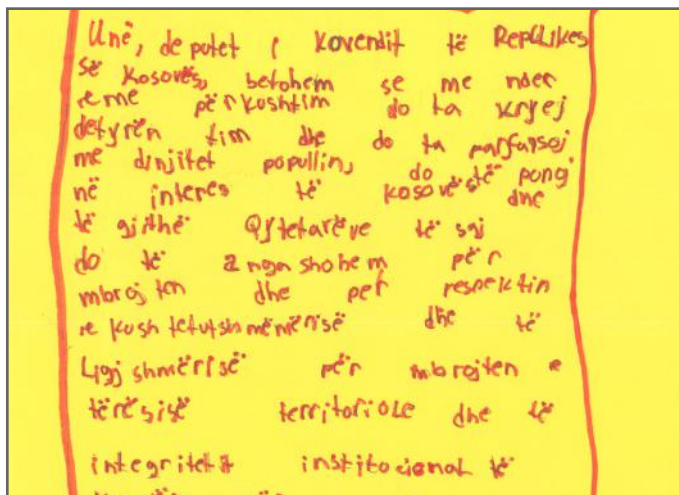 Unë, deputet i Kovendit të Republikes
së Kosovës, betohem se me nder
e me përkushtim do ta kryej
detyrën tim dhe do ta parfaqsoj
me dinjitet popullin, do të ponoj
në interes të Kosovës dhe
të gjithë Qytetarëve të saj
do të angashohem për
mbrojten dhe për respektin
e kushtetutshmëmërisë dhe të
Ligjshmërisë për mbrojten e
tërësisë territoriale dhe të
integritetit institocional të